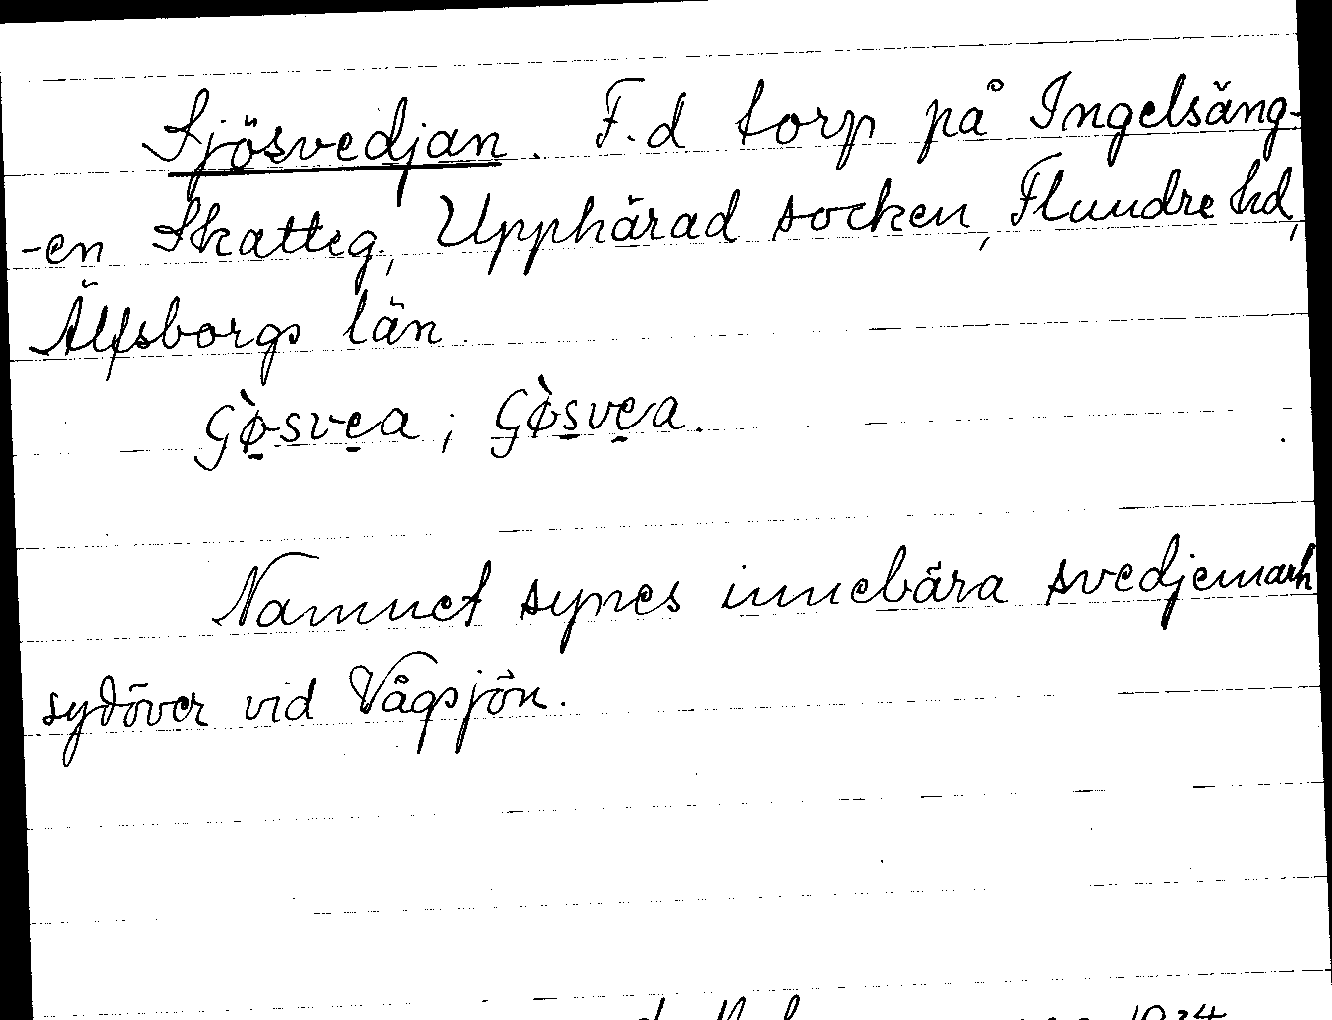 Sjösvedjan. F.d torp på Ingelsäng-
-en Skatteg., Upphärad socken, Flundre hd,
Älfsborgs län.
Çø̀svea ; Çø̀svea.
Namnet synes innebära svedjemark
sydöver vid Vågsjön.
1934